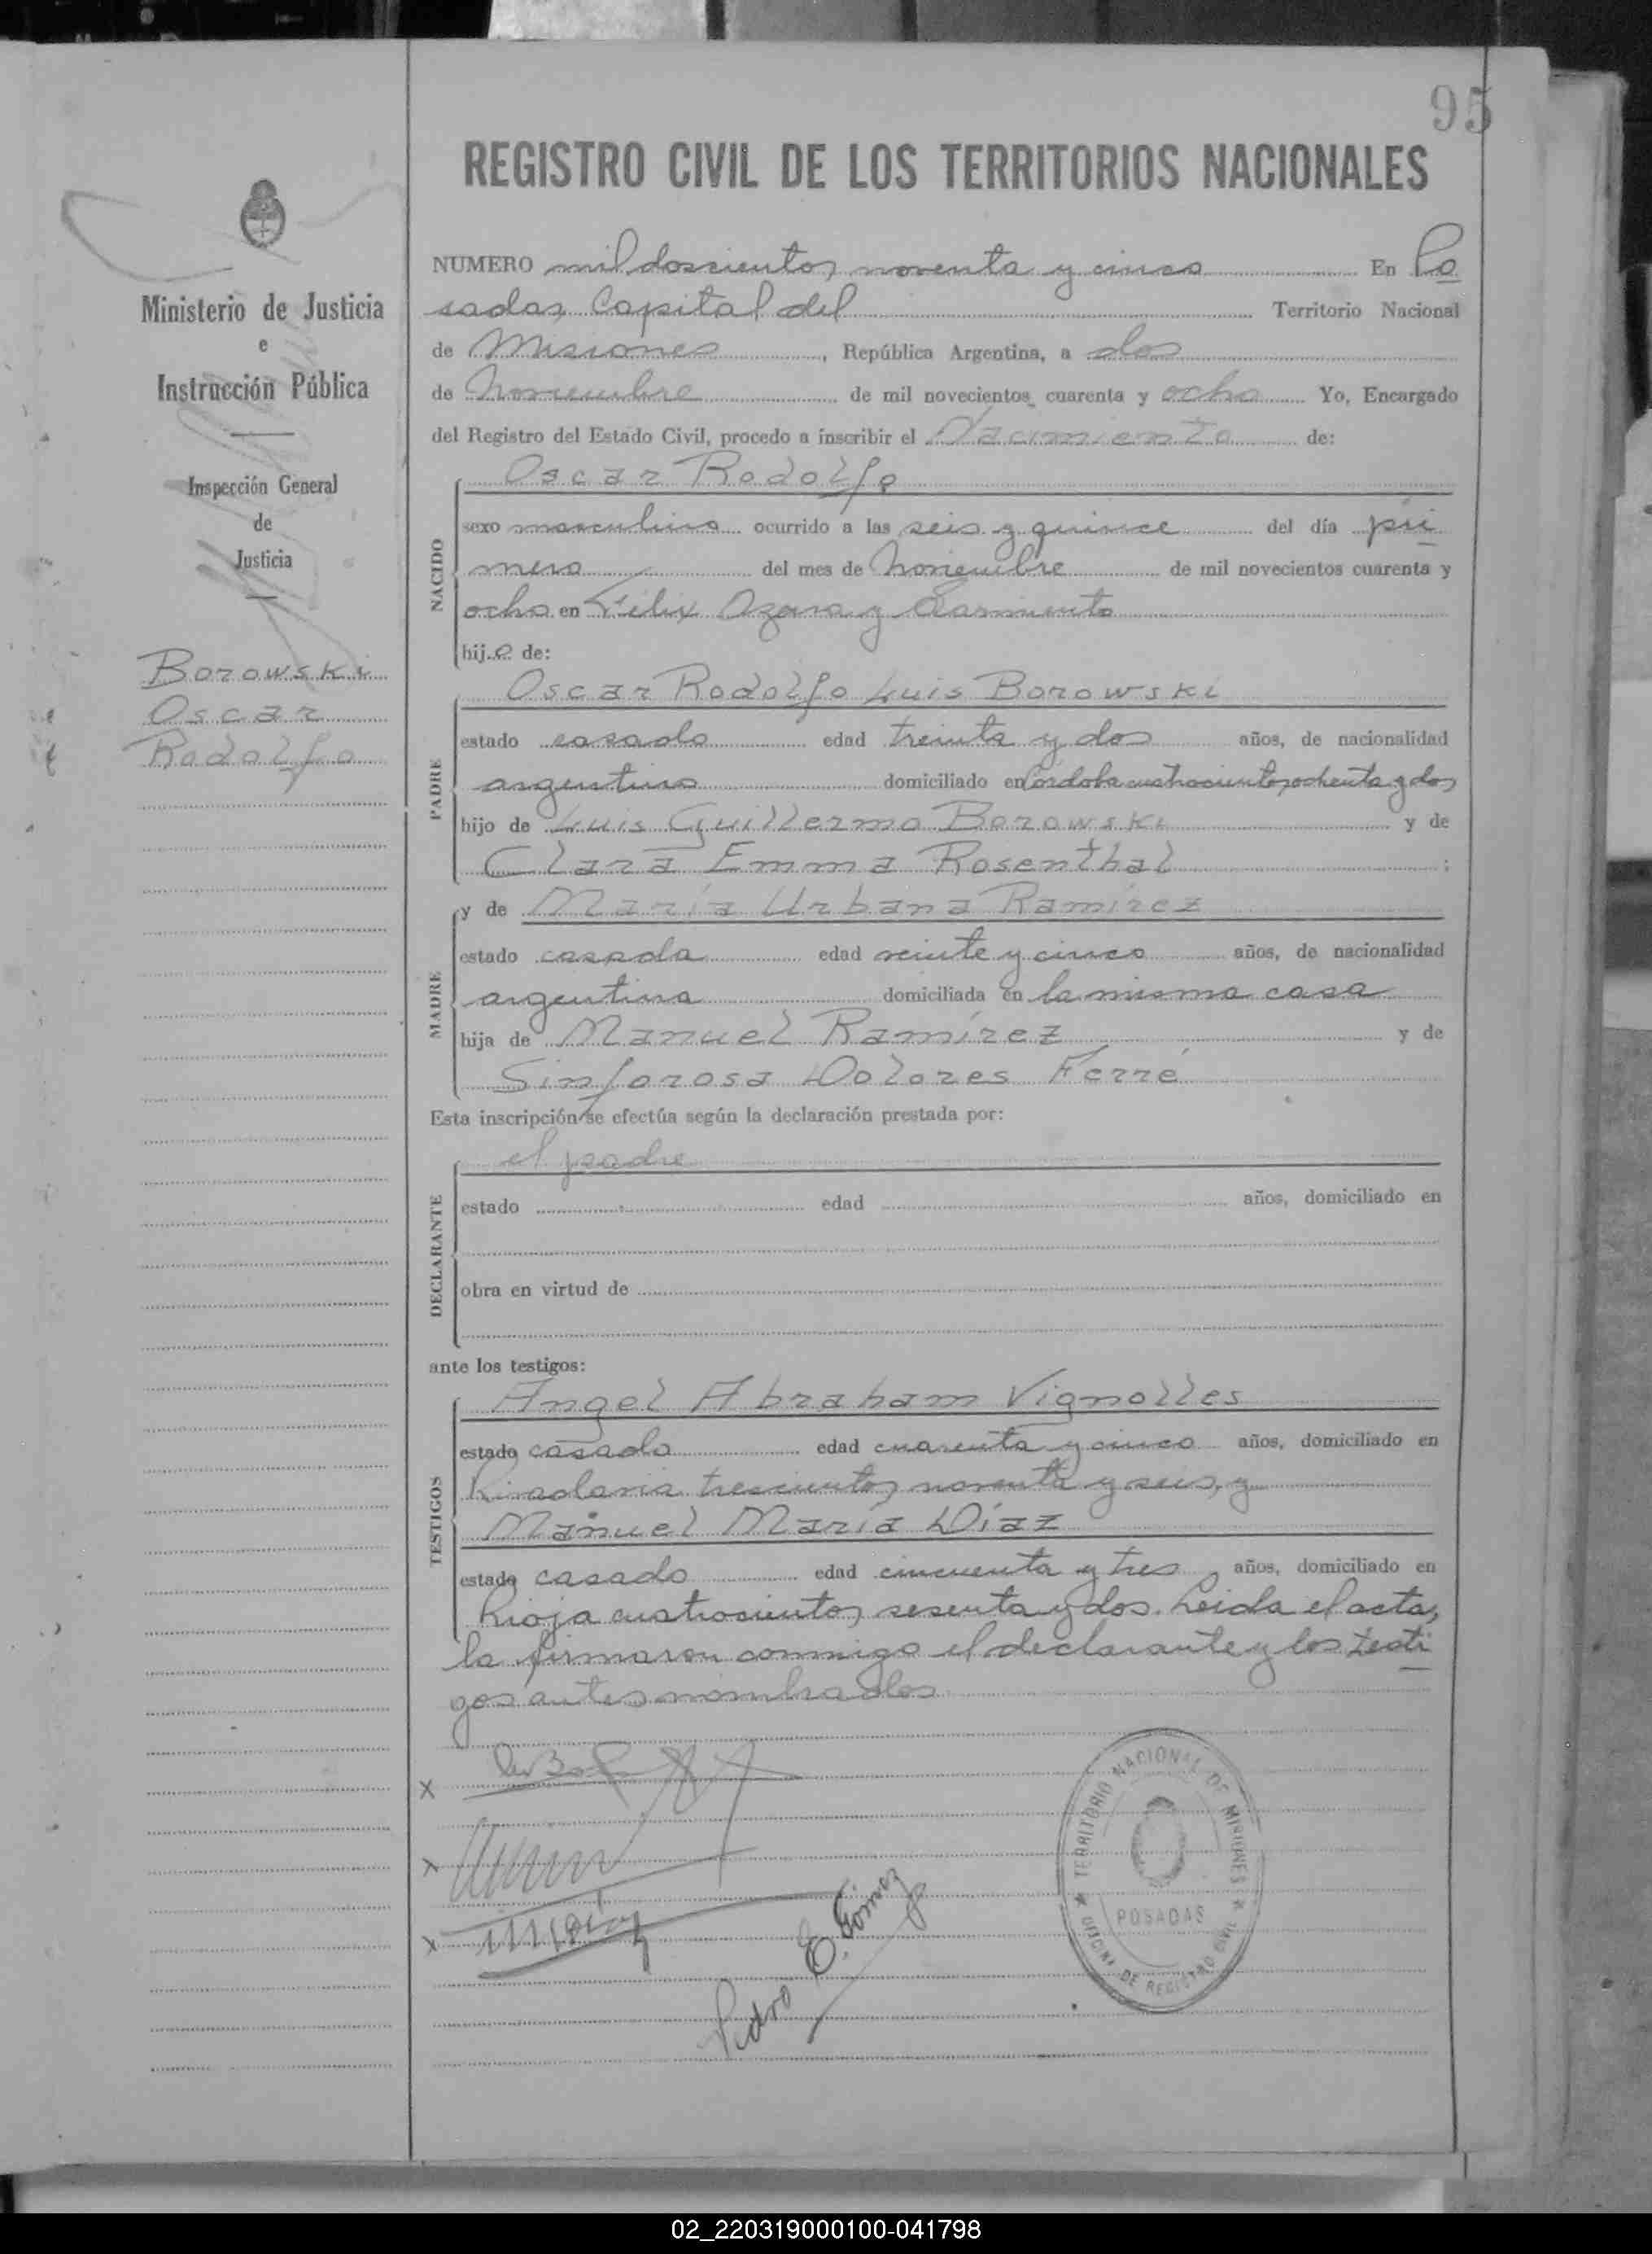 95
REGISTRO CIVIL DE LOS TERRITORIOS NACIONALES
Ministerio de Justicia
e
Instrucción Pública
Inspección General
de
Justicia
Borowski
Oscar
Rodolfo
NUMERO mil doscientos noventa y cinco En Po
sadas, Capital del Territorio Nacional
de Misiones, República Argentina, a dos
de Noviembre de mil novecientos cuarenta y ocho Yo, Encargado
del Registro del Estado Civil, procedo a inscribir el Nacimiento de:
NACIDO
Oscar Rodolfo
sexo masculino ocurrido a las seis y quince del día pri
mero del mes de Noviembre de mil novecientos cuarenta y
ocho en Félix Azara y Sarmiento
hijo de:
PADRE
Oscar Rodolfo Luis Borowski
estado casado edad treinta y dos años, de nacionalidad
argentina domiciliado en Córdoba cuatrocientos ochenta y dos
hijo de Luis Guillermo Borowski y de
Clara Emma Rosenthal;
MADRE
y de María Urbana Ramírez
estado casada edad veinte y cinco años, de nacionalidad
argentina domiciliada en la misma casa
hija de Manuel Ramírez y de
Sinforosa Dolores Ferré
Esta inscripción se efectúa según la declaración prestada por:
DECLARANTE
el padre
estado edad años, domiciliado en
obra en virtud de
ante los testigos:
TESTIGOS
Angel Abraham Vignolles
estado casado edad cuarenta y cinco años, domiciliado en
trescientos noventa y seis, y
Manuel María Díaz
estado casado edad cincuenta y tres, años, domiciliado en
Rioja cuatrocientos sesenta y dos. Leida el acta,
la firmaron conmigo el declarante y los testi
gos antes nombrados
x
x
x
Pedro E. Gómez
TERRITORIO NACIONAL DE MISIONES
POSADAS
OFICINA DE REGISTRO CIVIL
02_220319000100-041798